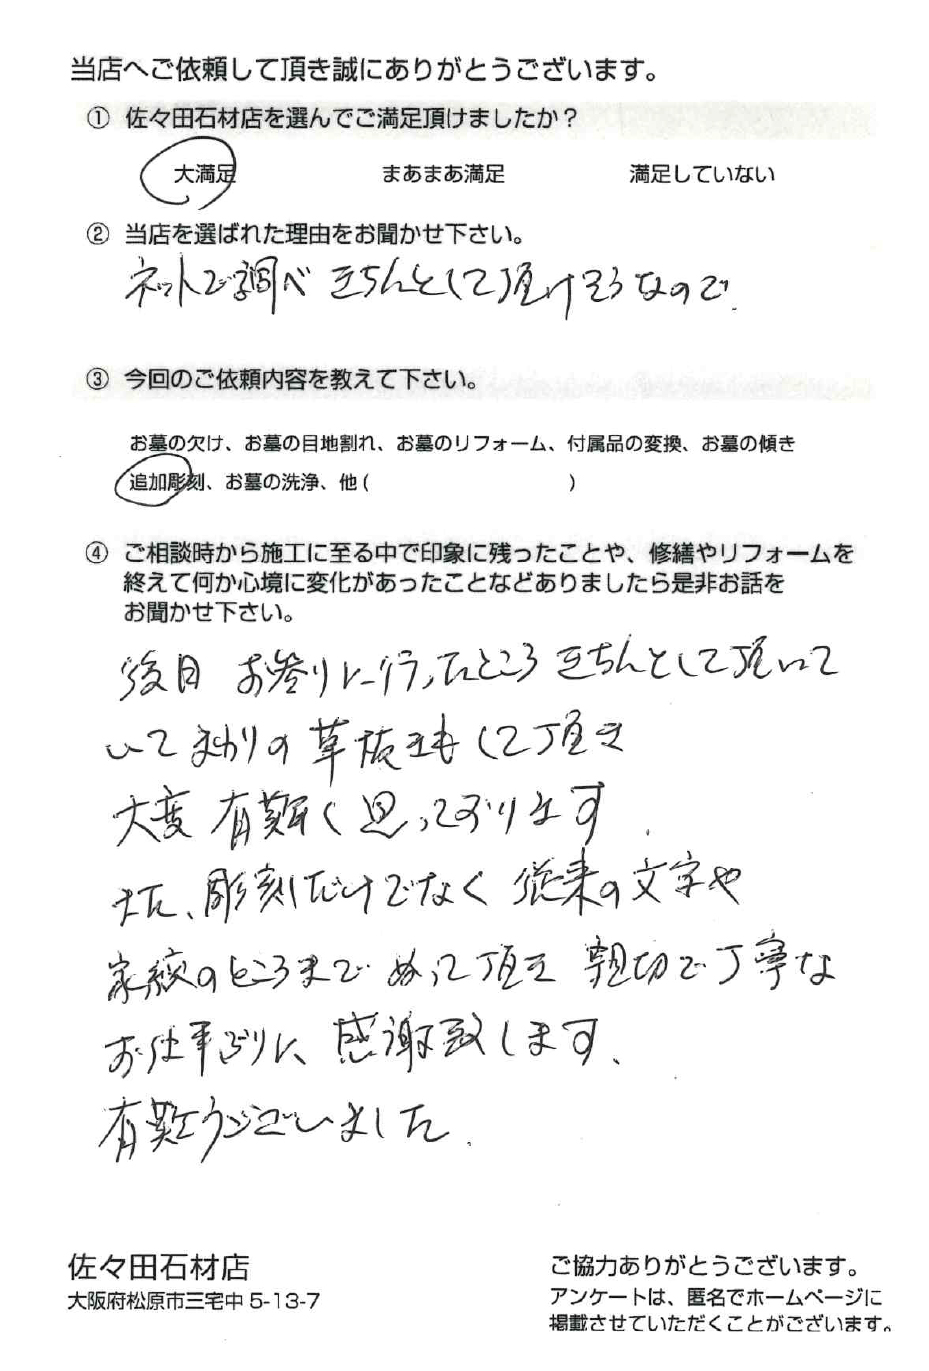 当店へご依頼して頂き誠にありがとうございます。
① 佐々田石材店を選んでご満足頂けましたか？
大満足 まあまあ満足 満足していない
② 当店を選ばれた理由をお聞かせ下さい。
ネットで調べ きちんとして頂けそうなので.
③ 今回のご依頼内容を教えて下さい。
お墓の欠け、お墓の目地割れ、お墓のリフォーム、付属品の変換、お墓の傾き
追加彫刻、お墓の洗浄、他 ( )
④ ご相談時から施工に至る中で印象に残ったことや、修繕やリフォームを
終えて何か心境に変化があったことなどありましたら是非お話を
お聞かせ下さい。
後日 お参りに行ったところ きちんとして頂いて
いて まわりの 草抜きも して頂き
大変 有難く 思っております.
また、彫刻だけでなく 従来の文字や
家紋のところまで ぬって頂き 親切で丁寧な
お仕事ぶりに、感謝致します、
有難うございました.
佐々田石材店
大阪府松原市三宅中 5-13-7
ご協力ありがとうございます。
アンケートは、匿名でホームページに
掲載させていただくことがございます。